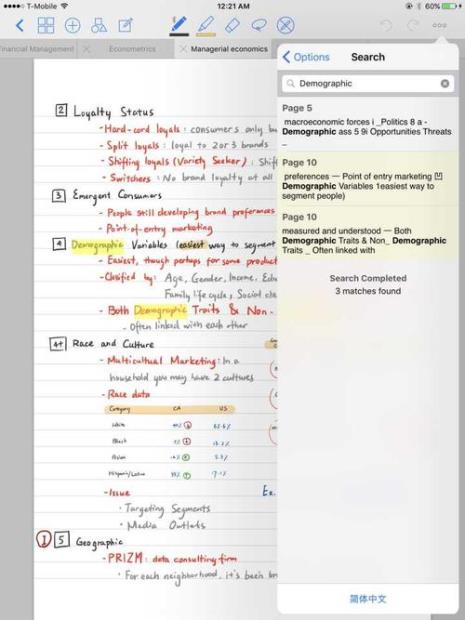 T-Mobile
12:21 AM
60%
Financial Management
Econometrics
Managerial economics
2 Loyalty Status
- Hard-cord loyals: consumers only bu
- Split loyals: loyal to 2 or 3 brands
- Shifting loyals (Variety Seeker): Shif
- Switchers: No brand loyalty at all
3 Emergent Consumers
- People still developing brand preferences
- Point-of-entry marketing
4 Demographic Variables (easiest way to segment
- Easiest, though perhaps for some product
- Clasified by: Age, Gender, Income, Edu
Family life cycle, Social cla
- Both Demographic Traits & Non-
- Often linked with each other
4+ Race and Culture
- Multicultural Marketing: In a
household you may have 2 cultures
- Race data
Category CA US
White
Black
Asian
Hispanic/Latino
- Issue
Ex.
· Targeting Segments
· Media Outlets
1 5 Geographic
- PRIZM: data consulting firm
· For each neighborhood, it's been br
Options
Search
Demographic
Page 5
macroeconomic forces i _Politics 8 a -
Demographic ass 5 9i Opportunities Threats
–
Page 10
preferences — Point of entry marketing 囜
Demographic Variables 1easiest way to
segment people)
Page 10
measured and understood — Both
Demographic Traits & Non_ Demographic
Traits _ Often linked with
Search Completed
3 matches found
简体中文